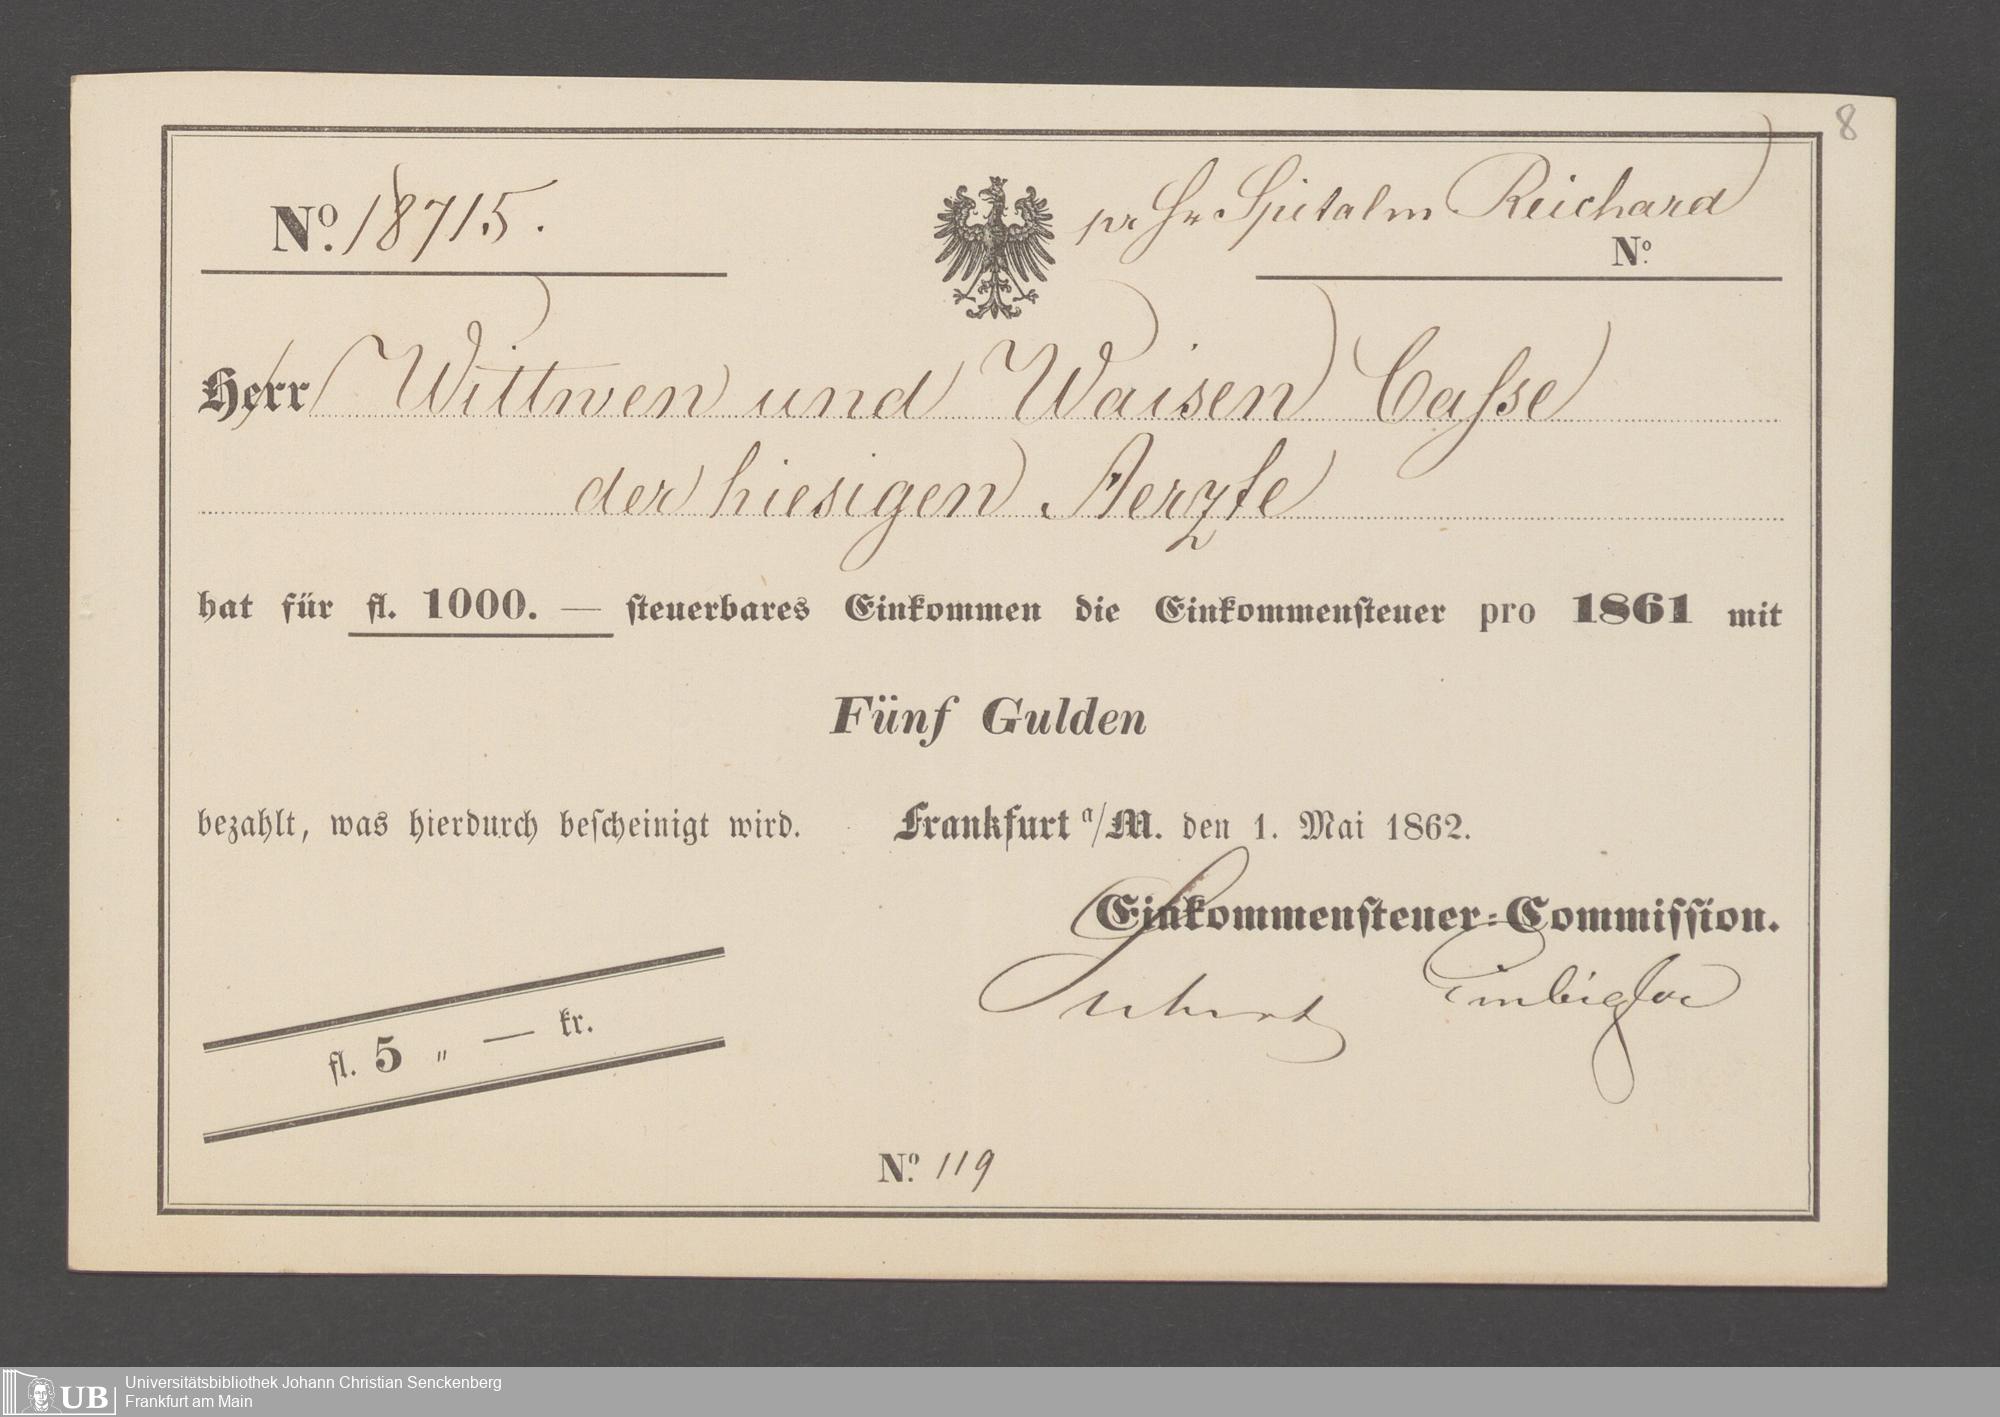 8
No. 18715.
pr Hr Spitalm Reichard
No.
Herr Wittwen und Waisen Casse
der hiesigen Aerzte
hat für fl. 1000. — steuerbares Einkommen die Einkommensteuer pro 1861 mit
Fünf Gulden
bezahlt, was hierdurch bescheinigt wird. Frankfurt a/M. den 1. Mai 1862.
Einkommensteuer-Commission.
fl. 5 „ — kr.
No. 119
UB
Universitätsbibliothek Johann Christian Senckenberg
Frankfurt am Main